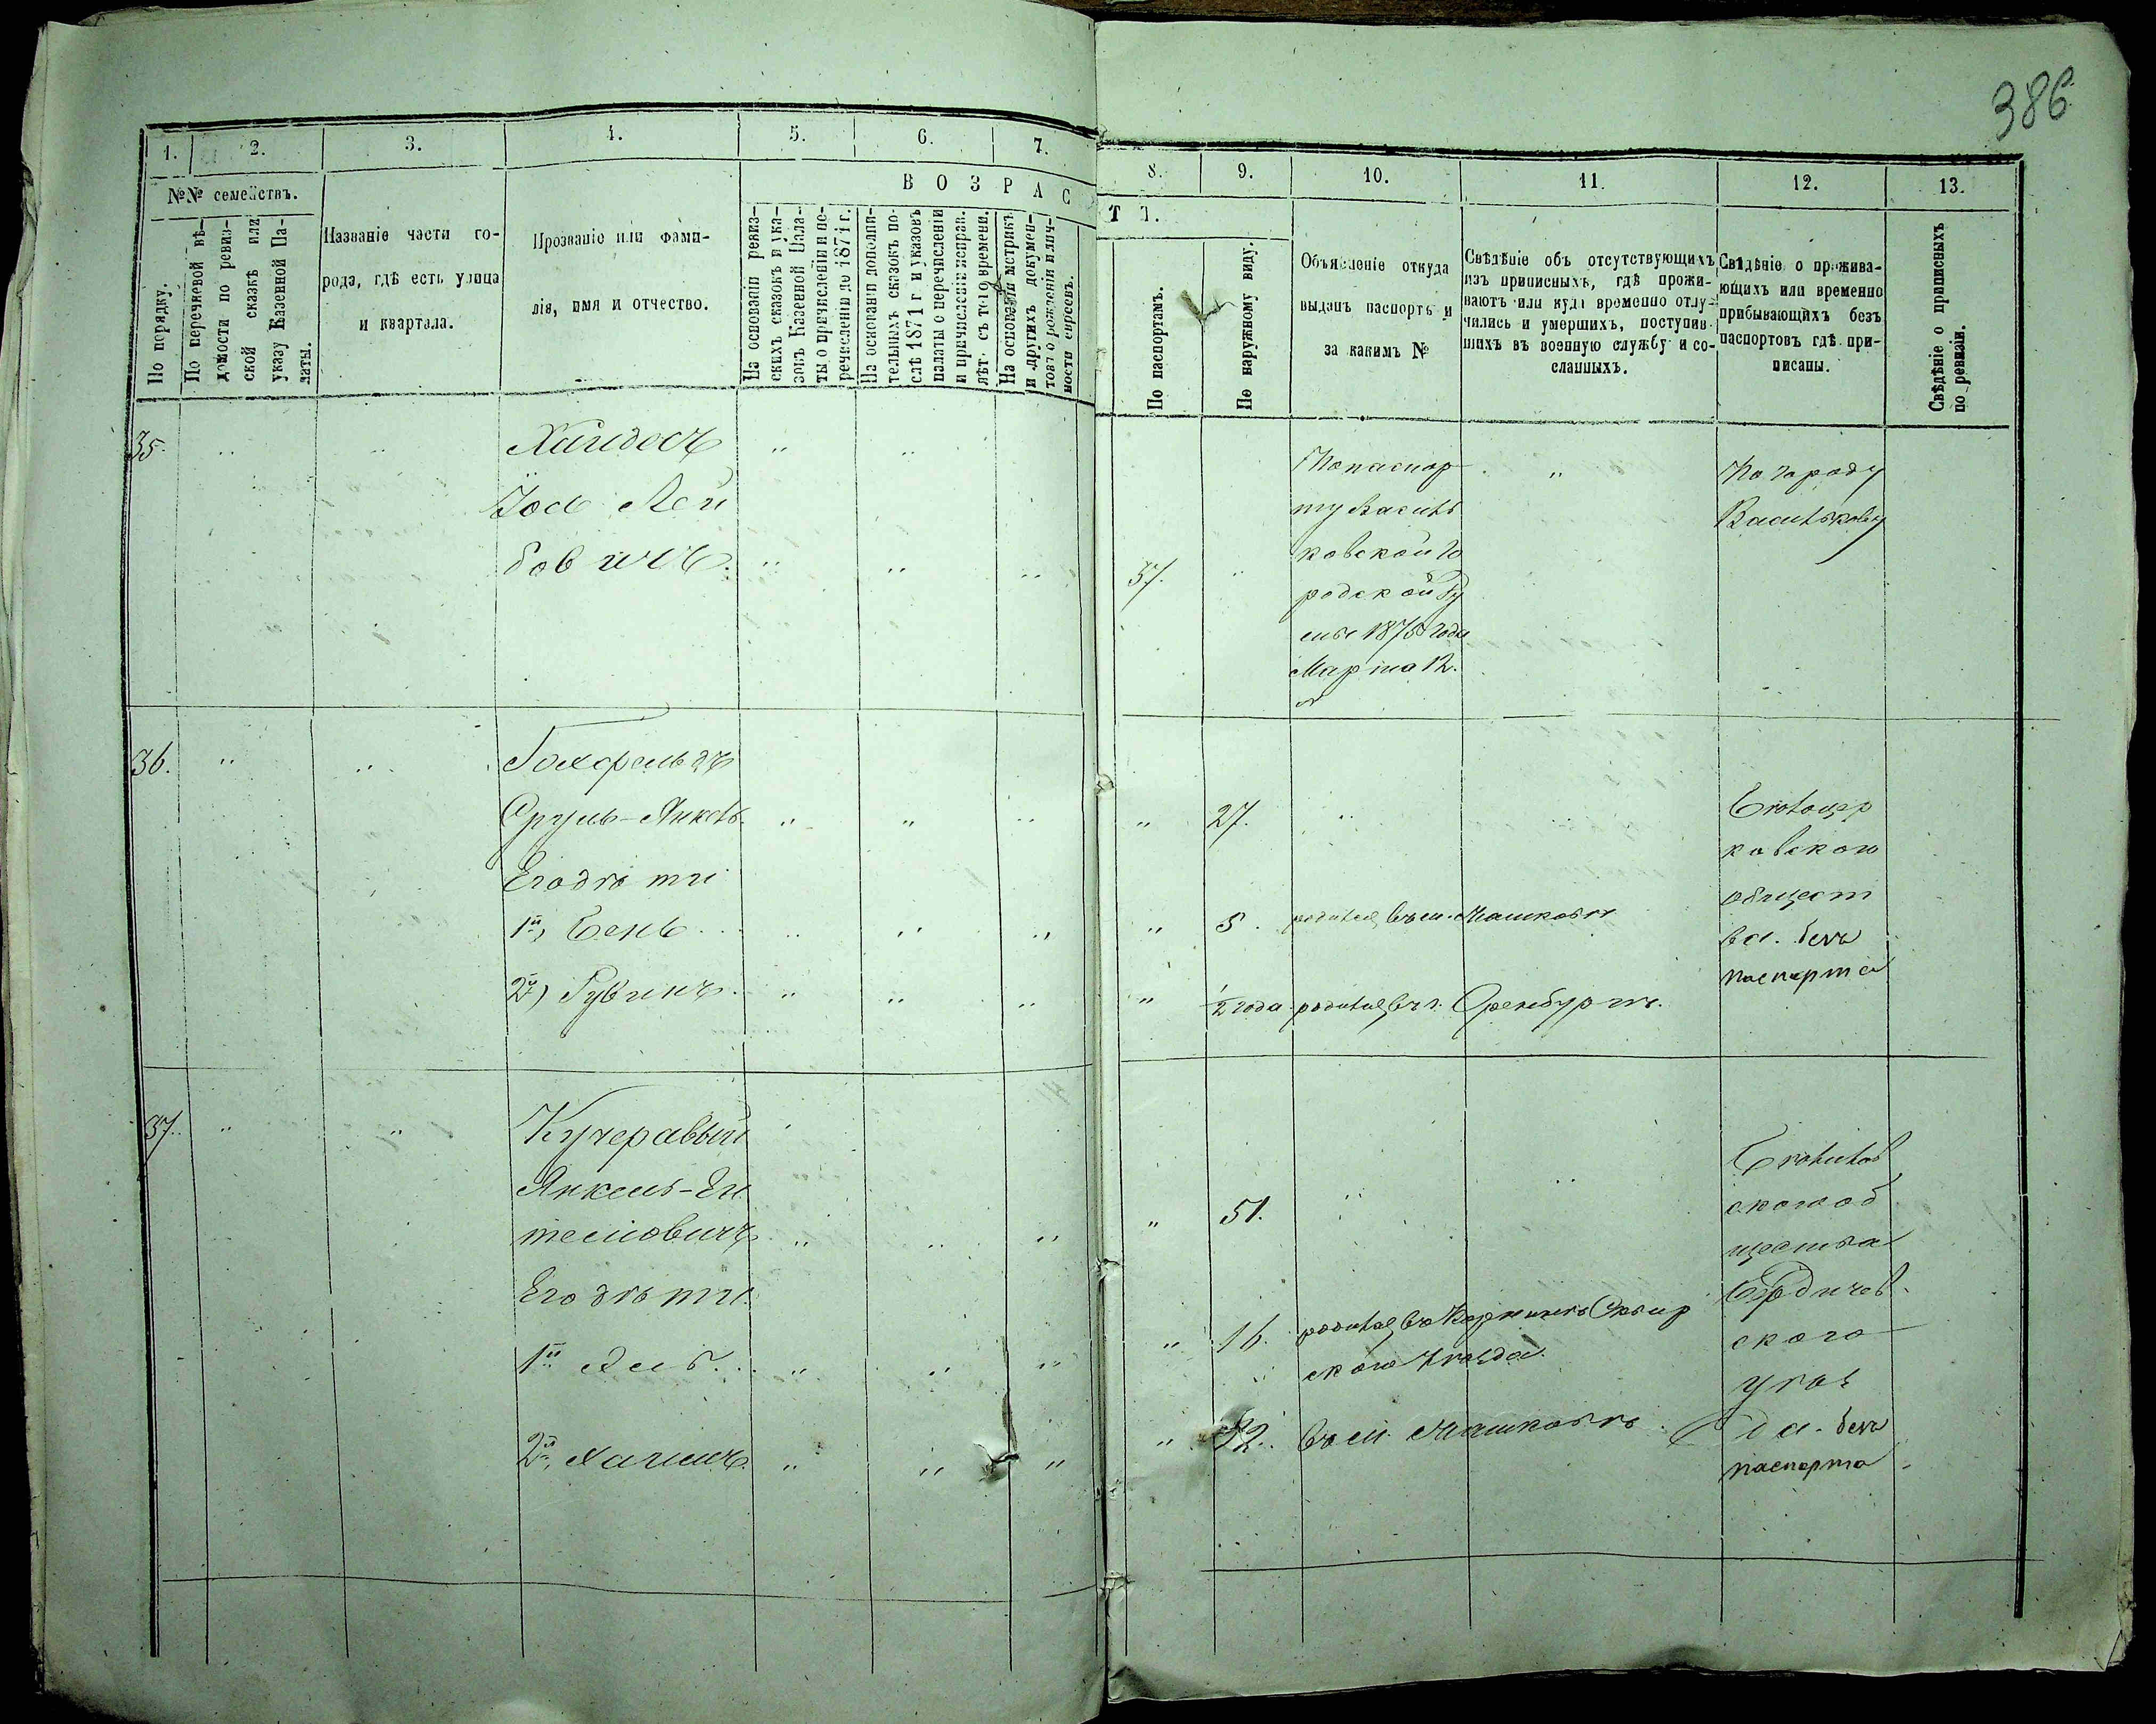 386
1. 2. 3. 4. 5. 6. 7. 8. 9. 10. 11. 12. 13.
№№ семействъ.
По порядку.
По перечневой вѣ-
домости по ревиз-
ской сказкѣ или
указу Казенной Па-
латы.
Названіе части го-
рода, гдѣ есть улица
и квартала.
Прозваніе или фами-
лія, имя и отчество.
ВОЗРАСТЪ.
На основаніи ревиз-
скихъ сказокъ и ука-
зовъ Казенной Пала-
ты о причисленіи и пе-
речисленіи до 1871 г.
На основаніи дополни-
тельныхъ сказокъ по-
слѣ 1871 г. и указовъ
палаты о перечисленіи
и причисленіи исправ.
лѣт. съ того времени.
На основаніи метрикъ
и другихъ докумен-
товъ о рожденіи и лич-
ности евреевъ.
По паспортамъ.
По наружному виду.
Объясненіе откуда
выданъ паспортъ и
за какимъ №
Свѣдѣніе объ отсутствующихъ
изъ приписныхъ, гдѣ прожи-
ваютъ или куда временно отлу-
чились и умершихъ, поступив-
шихъ въ военную службу и со-
сланныхъ.
Свѣдѣніе о прожива-
ющихъ или временно
прибывающихъ безъ
паспортовъ гдѣ при-
писаны.
Свѣдѣніе о приписныхъ
по ревизіи.
35.
Іось Лей
бовичъ
37.
По паспор
ту Василь
ковской Го
родской Ду
мы 187 года
Марта 12.
По городу
Василькову
36.
Гохфельдъ
Сруль-Янкель
27.
Его дѣти
1й, Бень
5. родился въ м. Машковѣ
2й) Рувинъ
1/2 года родился въ г. Оренбургѣ.
Бѣлоцер
ковскаго
общест
ва. безъ
паспорта
37.
Кучеравый
Янкель-
телиовичъ
51.
Его дѣти
1й
16. родился въ Сквир
скаго уѣзда.
2й, Хаимъ
12. въ м. Машковѣ
скаго об
щества
Бердичев
скаго
уѣз
да. безъ
паспорта